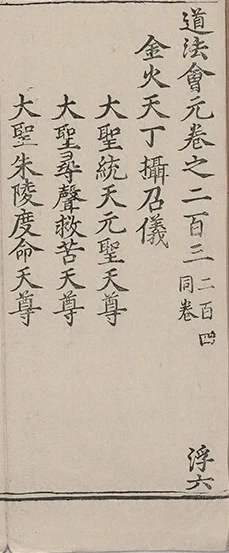 道法會元卷之二百三 二百四同卷 浮六
金火天丁攝召儀
大聖統天元聖天尊
大聖尋聲救苦天尊
大聖朱陵度命天尊